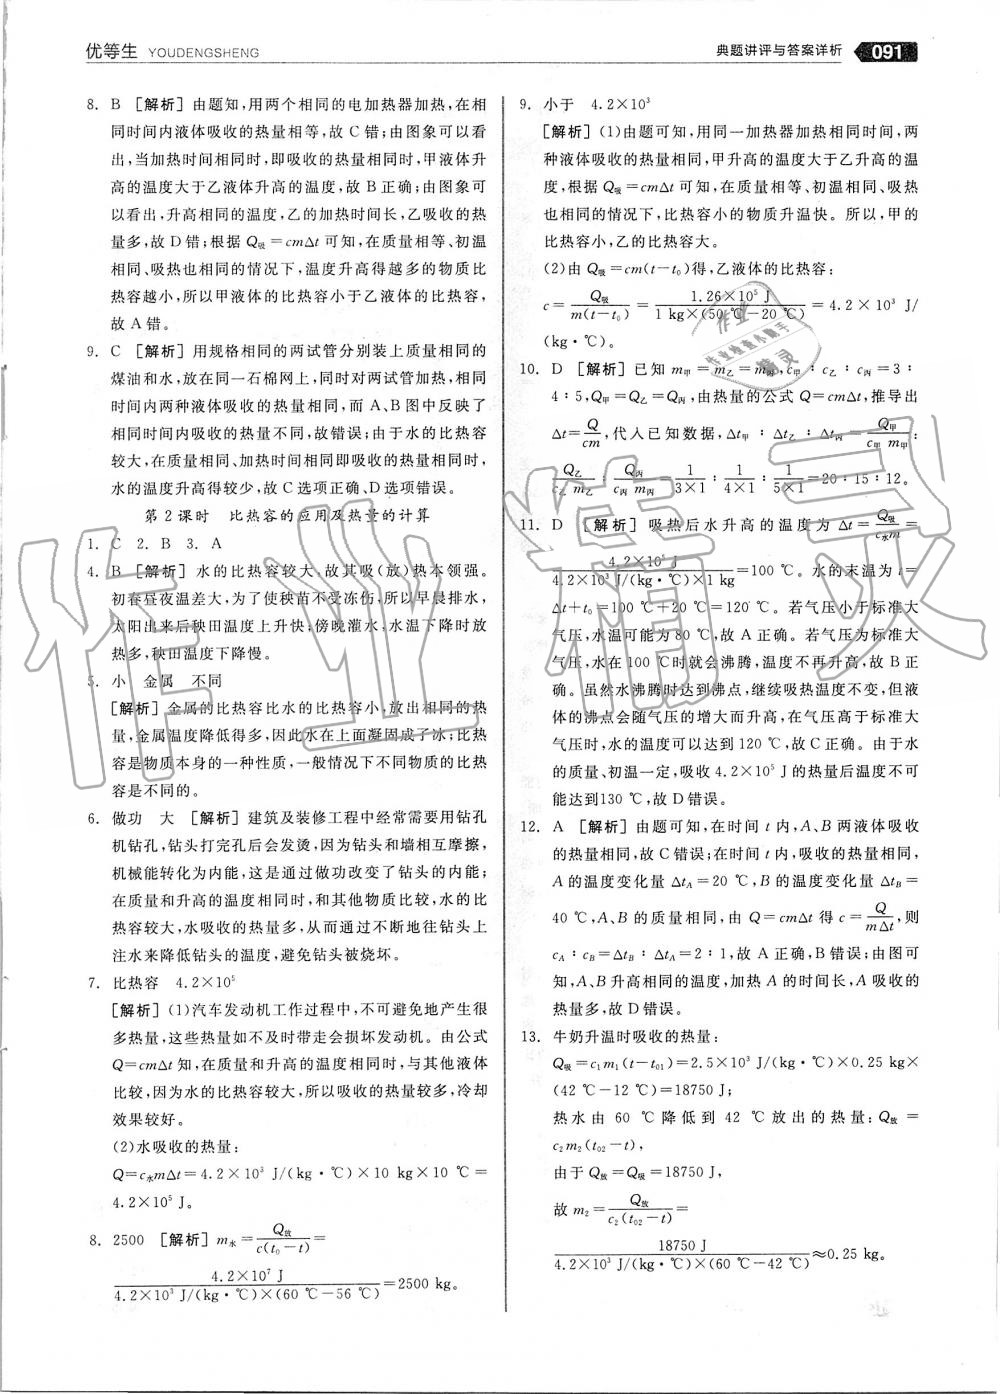 优等生 YOUDENGSHENG
典题讲评与答案详析 091
8. B [解析] 由题知,用两个相同的电加热器加热,在相
同时间内液体吸收的热量相等,故 C 错;由图象可以看
出,当加热时间相同时,即吸收的热量相同时,甲液体升
高的温度大于乙液体升高的温度,故 B 正确;由图象可
以看出,升高相同的温度,乙的加热时间长,乙吸收的热
量多,故 D 错;根据 Q吸=cmΔt 可知,在质量相等、初温
相同、吸热也相同的情况下,温度升高得越多的物质比
热容越小,所以甲液体的比热容小于乙液体的比热容,
故 A 错。
9. C [解析] 用规格相同的两试管分别装上质量相同的
煤油和水,放在同一石棉网上,同时对两试管加热,相同
时间内两种液体吸收的热量相同,而 A、B 图中反映了
相同时间内吸收的热量不同,故错误;由于水的比热容
较大,在质量相同、加热时间相同即吸收的热量相同时,
水的温度升高得较少,故 C 选项正确、D 选项错误。
第 2 课时 比热容的应用及热量的计算
1. C 2. B 3. A
4. B [解析] 水的比热容较大,故其吸(放)热本领强。
初春昼夜温差大,为了使秧苗不受冻伤,所以早晨排水,
太阳出来后秧田温度上升快;傍晚灌水,水温下降时放
热多,秧田温度下降慢。
5. 小 金属 不同
[解析] 金属的比热容比水的比热容小,放出相同的热
量,金属温度降低得多,因此水在上面凝固成了冰;比热
容是物质本身的一种性质,一般情况下不同物质的比热
容是不同的。
6. 做功 大 [解析] 建筑及装修工程中经常需要用钻孔
机钻孔,钻头打完孔后会发烫,因为钻头和墙相互摩擦,
机械能转化为内能,这是通过做功改变了钻头的内能;
在质量和升高的温度相同时,和其他物质比较,水的比
热容较大,水吸收的热量多,从而通过不断地往钻头上
注水来降低钻头的温度,避免钻头被烧坏。
7. 比热容 4.2×10⁵
[解析] (1)汽车发动机工作过程中,不可避免地产生很
多热量,这些热量如不及时带走会损坏发动机。由公式
Q=cmΔt 知,在质量和升高的温度相同时,与其他液体
比较,因为水的比热容较大,所以吸收的热量较多,冷却
效果较好。
(2)水吸收的热量:
Q=c水mΔt=4.2×10³ J/(kg·℃)×10 kg×10 ℃=
4.2×10⁵ J。
8. 2500 [解析] m水=Q放/c(t₀-t)=
4.2×10⁷ J/4.2×10³ J/(kg·℃)×(60 ℃-56 ℃)=2500 kg。
9. 小于 4.2×10³
[解析] (1)由题可知,用同一加热器加热相同时间,两
种液体吸收的热量相同,甲升高的温度大于乙升高的温
度,根据 Q吸=cmΔt 可知,在质量相等、初温相同、吸热
也相同的情况下,比热容小的物质升温快。所以,甲的
比热容小,乙的比热容大。
(2)由 Q吸=cm(t-t₀)得,乙液体的比热容:
c=Q吸/m(t-t₀)=1.26×10⁵ J/1 kg×(50 ℃-20 ℃)=4.2×10³ J/
(kg·℃)。
10. D [解析] 已知 m甲=m乙=m丙,c甲:c乙:c丙=3:
4:5,Q甲=Q乙=Q丙,由热量的公式 Q=cmΔt,推导出
Δt=Q/cm,代人已知数据,Δt甲:Δt乙:Δt丙=Q甲/c甲 m甲:
Q乙/c乙 m乙:Q丙/c丙 m丙=1/3×1:1/4×1:1/5×1=20:15:12。
11. D [解析] 吸热后水升高的温度为 Δt=Q吸/c水m=
4.2×10⁵ J/4.2×10³ J/(kg·℃)×1 kg=100 ℃。水的末温为 t=
Δt+t₀=100 ℃+20 ℃=120 ℃。若气压小于标准大
气压,水温可能为 80 ℃,故 A 正确。若气压为标准大
气压,水在 100 ℃时就会沸腾,温度不再升高,故 B 正
确。虽然水沸腾时达到沸点,继续吸热温度不变,但液
体的沸点会随气压的增大而升高,在气压高于标准大
气压时,水的温度可以达到 120 ℃,故 C 正确。由于水
的质量、初温一定,吸收 4.2×10⁵ J 的热量后温度不可
能达到130 ℃,故 D 错误。
12. A [解析] 由题可知,在时间 t 内,A、B 两液体吸收
的热量相同,故 C 错误;在时间 t 内,吸收的热量相同,
A 的温度变化量 ΔtA=20 ℃,B 的温度变化量 ΔtB=
40 ℃,A、B 的质量相同,由 Q=cmΔt 得 c=Q/mΔt,则
cA:cB=ΔtB:ΔtA=2:1,故 A 正确、B 错误;由图可
知,A、B 升高相同的温度,加热 A 的时间长,A 吸收的
热量多,故 D 错误。
13. 牛奶升温时吸收的热量:
Q吸=c₁m₁(t-t₀₁)=2.5×10³ J/(kg·℃)×0.25 kg×
(42 ℃-12 ℃)=18750 J;
热水由 60 ℃降低到 42 ℃放出的热量:Q放=
c₂m₂(t₀₂-t),
由于 Q放=Q吸=18750 J,
故 m₂=Q放/c₂(t₀₂-t)=
18750 J/4.2×10³ J/(kg·℃)×(60 ℃-42 ℃)≈0.25 kg。
作业精灵
作业检查小助手